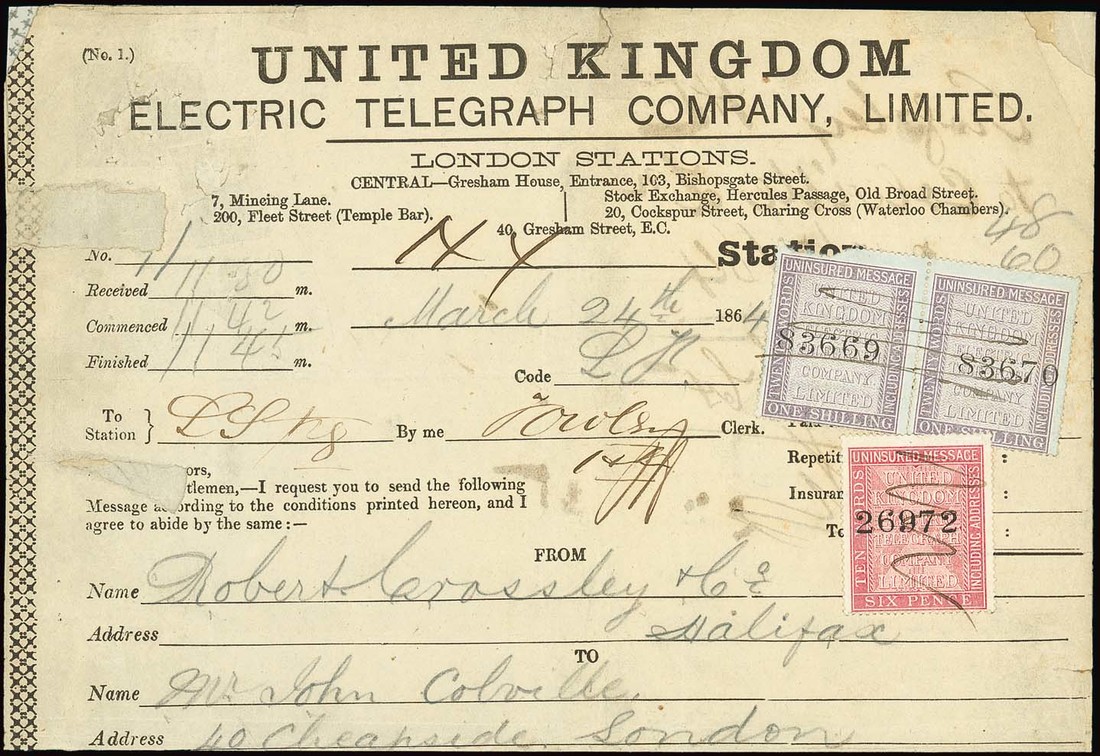 (No. 1.)
UNITED KINGDOM
ELECTRIC TELEGRAPH COMPANY, LIMITED.
LONDON STATIONS.
CENTRAL—Gresham House, Entrance, 103, Bishopsgate Street.
7, Mincing Lane.
200, Fleet Street (Temple Bar).
Stock Exchange, Hercules Passage, Old Broad Street.
20, Cockspur Street, Charing Cross (Waterloo Chambers).
40, Gresham Street, E.C.
48
60
No. 11
Station
Received 11 50 m.
Commenced 11 42 m.
March 24th 1864
Finished 11 45 m.
Code
To Station } By me Clerk.
UNINSURED MESSAGE
TWENTY WORDS
UNITED KINGDOM ELECTRIC TELEGRAPH COMPANY LIMITED
83669
INCLUDING ADDRESSES
ONE SHILLING
UNINSURED MESSAGE
TWENTY WORDS
UNITED KINGDOM TELEGRAPH COMPANY LIMITED
83670
INCLUDING ADDRESSES
ONE SHILLING
UNINSURED MESSAGE
TEN WORDS
UNITED KINGDOM ELECTRIC TELEGRAPH COMPANY LIMITED
26972
INCLUDING ADDRESSES
SIX PENCE
Repetit
Insuran
To
ors,
tlemen,—I request you to send the following
Message according to the conditions printed hereon, and I
agree to abide by the same:—
FROM
Name Robert Crossley & Co
Address Halifax
TO
Name Mr John Colville,
Address 40 Cheapside London